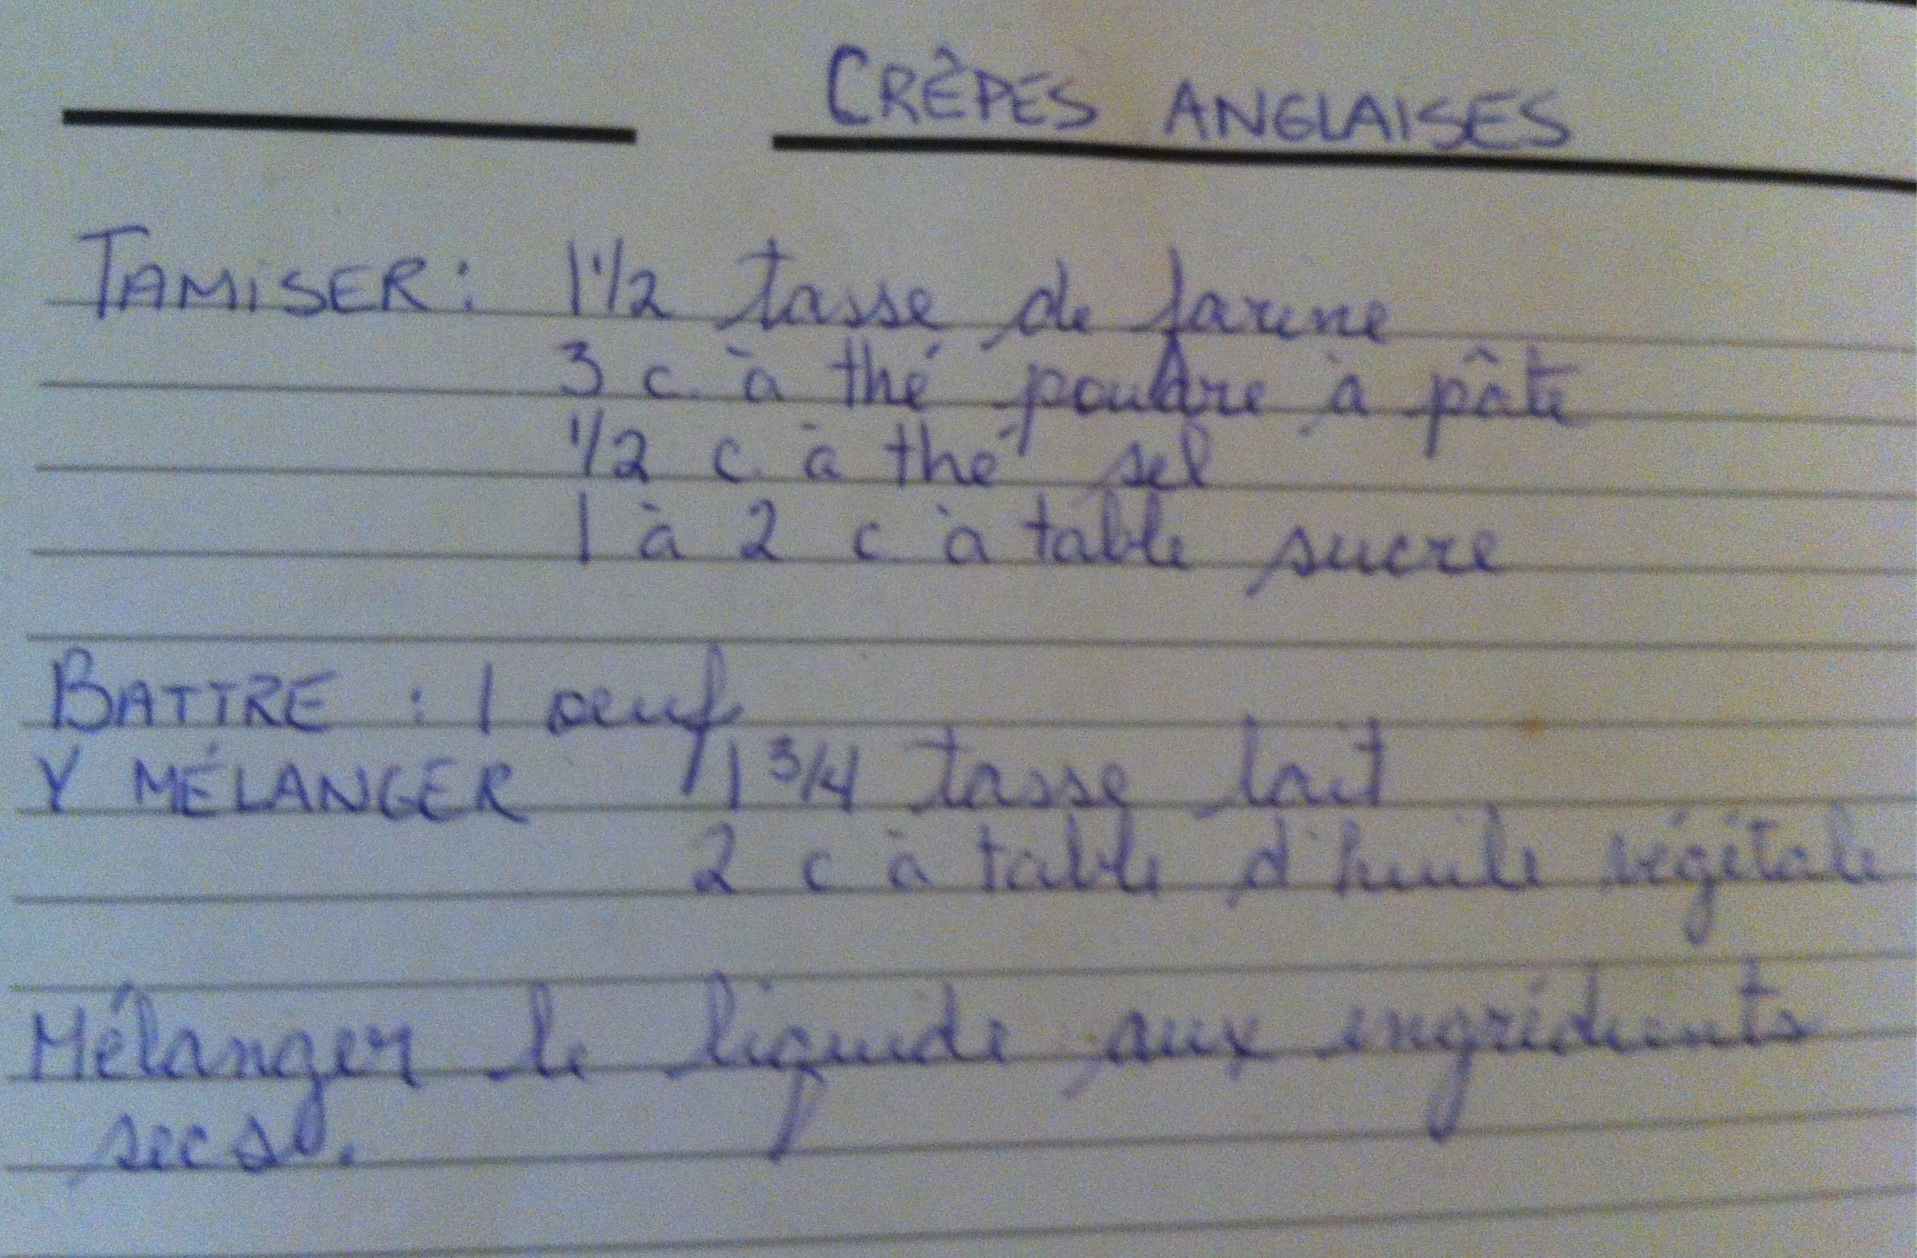 CRÊPES ANGLAISES
TAMISER: 1 1/2 tasse de farine
3 c. à thé poudre à pâte
1/2 c. à thé sel
1 à 2 c à table sucre
BATTRE : 1 oeuf
Y MÉLANGER 1 3/4 tasse lait
2 c. à table d'huile végétale
Mélanger le liquide aux ingrédients
secs.